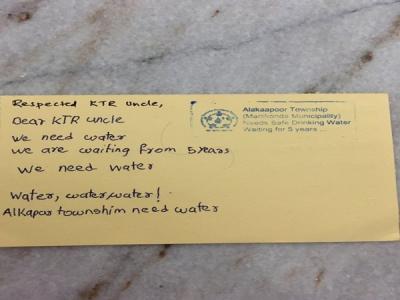 Respected KTR uncle,
Dear KTR uncle
we need water
we are waiting from 5 years
We need water
Water, water, water!
Alkapur townshim need water
Alakaapoor Township
(Manikonda Municipality)
Needs Safe Drinking Water
Waiting for 5 years ...